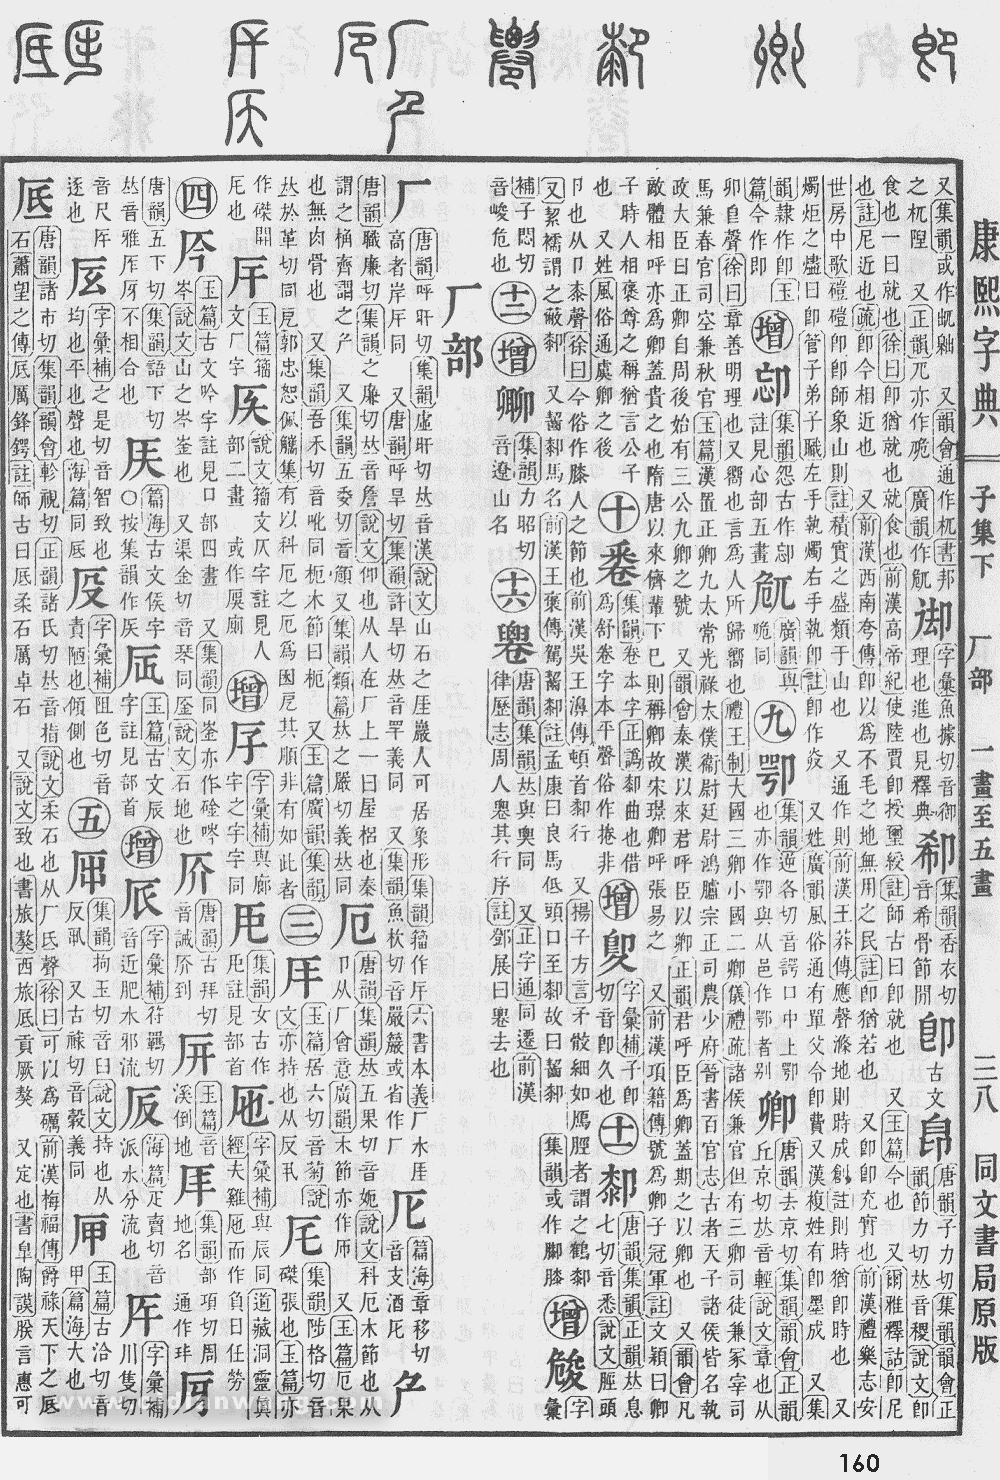 康熙字典 子集下 厂部 一畫至五畫 三八 同文書局原版
又集韻或作卼𠨜 又韻會通作杌書邦
之杌隉 又正韻兀亦作䠇 廣韻作𠨜
御
字彙魚據切音御
理也進也見釋典
郗
集韻香衣切
音希骨節閒
卽
古文
皍
唐韻子力切集韻韻會正
韻節力切𠀤音稷說文卽
食也一曰就也徐曰卽猶就也就食也前漢高帝紀使陸賈卽授璽綬註師古曰卽就也 又玉篇今也 又爾雅釋詁卽尼
也註尼近也疏卽今相近也 又前漢西南夷傳卽以爲不毛之地無用之民註卽猶若也 又卽卽充實也前漢禮樂志安
世房中歌磑磑卽卽師象山則註積實之盛類于山也 又通作則前漢王莽傳應聲滌地則時成創註則時猶卽時也 又
燭炬之燼曰卽管子弟子職左手執燭右手執卽註卽作㶳 又姓廣韻風俗通有單父令卽費又漢複姓有卽墨成 又集
韻隷作卽玉
篇今作即
增
卹
集韻怨古作卹
註見心部五畫
卼
廣韻與
䠇同
九
卾
集韻逆各切音諤口中上卾
也亦作卾與从邑作鄂者別
卿
唐韻去京切集韻韻會正韻
丘京切𠀤音輕說文章也从
卯皀聲徐曰章善明理也又嚮也言爲人所歸嚮也禮王制大國三卿小國二卿儀禮疏諸侯兼官但有三卿司徒兼冢宰司
馬兼春官司空兼秋官玉篇漢置正卿九太常光祿太僕衞尉廷尉鴻臚宗正司農少府晉書百官志古者天子諸侯皆名執
政大臣曰正卿自周後始有三公九卿之號 又韻會秦漢以來君呼臣以卿正韻君呼臣爲卿蓋期之以卿也 又韻會凡
敵體相呼亦爲卿蓋貴之也隋唐以來儕輩下已則稱卿故宋璟卿呼張易之 又前漢項籍傳號爲卿子冠軍註文穎曰卿
子時人相褒尊之稱猶言公子
也 又姓風俗通虞卿之後
十
卷
集韻卷本字正譌卻曲也借
爲舒卷字本平聲俗作捲非
增
字彙補子卽
切音卽久也
十一
厀
唐韻集韻正韻𠀤息
七切音悉說文脛頭
卩也从卩桼聲徐曰今俗作膝人之節也前漢吳王濞傳頓首厀行 又揚子方言矛骹細如鴈脛者謂之鶴厀
又絮襦謂之蔽厀 又齧厀馬名前漢王褒傳駕齧厀註孟康曰良馬低頭口至厀故曰齧厀 集韻或作䣛膝
增
字彙
補子悶切
音峻危也
十二
增
集韻力昭切
音遼山名
十六
唐韻集韻𠀤與䙴同 又正字通同遷前漢
律歷志周人䙴其行序註鄧展曰䙴去也
厂部
厂
唐韻呼旰切集韻虛旰切𠀤音漢說文山石之厓巖人可居象形集韻籀作厈六書本義厂水厓
高者岸厈同 又唐韻呼旱切集韻許旱切𠀤音罕義同 又集韻魚枚切音嚴籀或省作厂
篇海章移切
音支酒卮
唐韻職廉切集韻之廉切𠀤音詹說文仰也从人在厂上一曰屋梠也秦
謂之桷齊謂之厃 又集韻五委切音頠又集韻類篇𠀤之嚴切義𠀤同
厄
唐韻集韻𠀤五果切音妮說文科厄木節也从
卩从厂會意廣韻木節亦作㧖 又玉篇厄果
也無肉骨也 又集韻吾禾切音吪同枙木節曰枙 又玉篇廣韻集韻
𠀤於革切同戹郭忠恕佩觿集有以科厄之厄爲困戹其順非有如此者
三
玉篇居六切音菊說
文亦持也从反丮
厇
集韻陟格切音
磔張也玉篇亦
作磔開
戹也
厈
玉篇籀
文厂字
说文籀文仄字註見人
部二畫 或作厡廟
增
字彙補與廊
字之字字同
集韻女古作
戹註見部首
字彙補與辰同遁藏洞靈眞
經夫雞戹而作負日任勞
四
玉篇古文吟字註見口部四畫 又集韻同崟亦作碒唫
岑說文山之岑崟也 又渠金切音琴同厱說文石地也
唐韻古拜切
音誡𠩊到
玉篇音
溪倒地
集韻部項切周
地名 通作玤
厊
唐韻五下切集韻語下切
𠀤音雅厏厊不相合也
篇海古文侯字
○按集韻作𠂤
玉篇古文辰
字註見部首
增
字彙補符羈切
音近肥水邪流
海篇疋賣切音
派水分流也
字彙補
川隻切
音尺厈
逐也
字彙補之是切音智致也
均也平也聲也海篇同厎
字彙補阻色切音
責陋也傾側也
五
集韻拘玉切音曰說文持也从
反丮 又古祿切音穀義同
玉篇古洽切音
甲篇海大也
厎
唐韻諸市切集韻韻會軫視切正韻諸氏切𠀤音指說文柔石也从厂氐聲徐曰可以爲礪前漢梅福傳爵祿天下之厎
石蕭望之傳厎厲鋒鍔註師古曰厎柔石厲卓石 又說文致也書旅獒西旅厎貢厥獒 又定也書皐陶謨朕言惠可
160